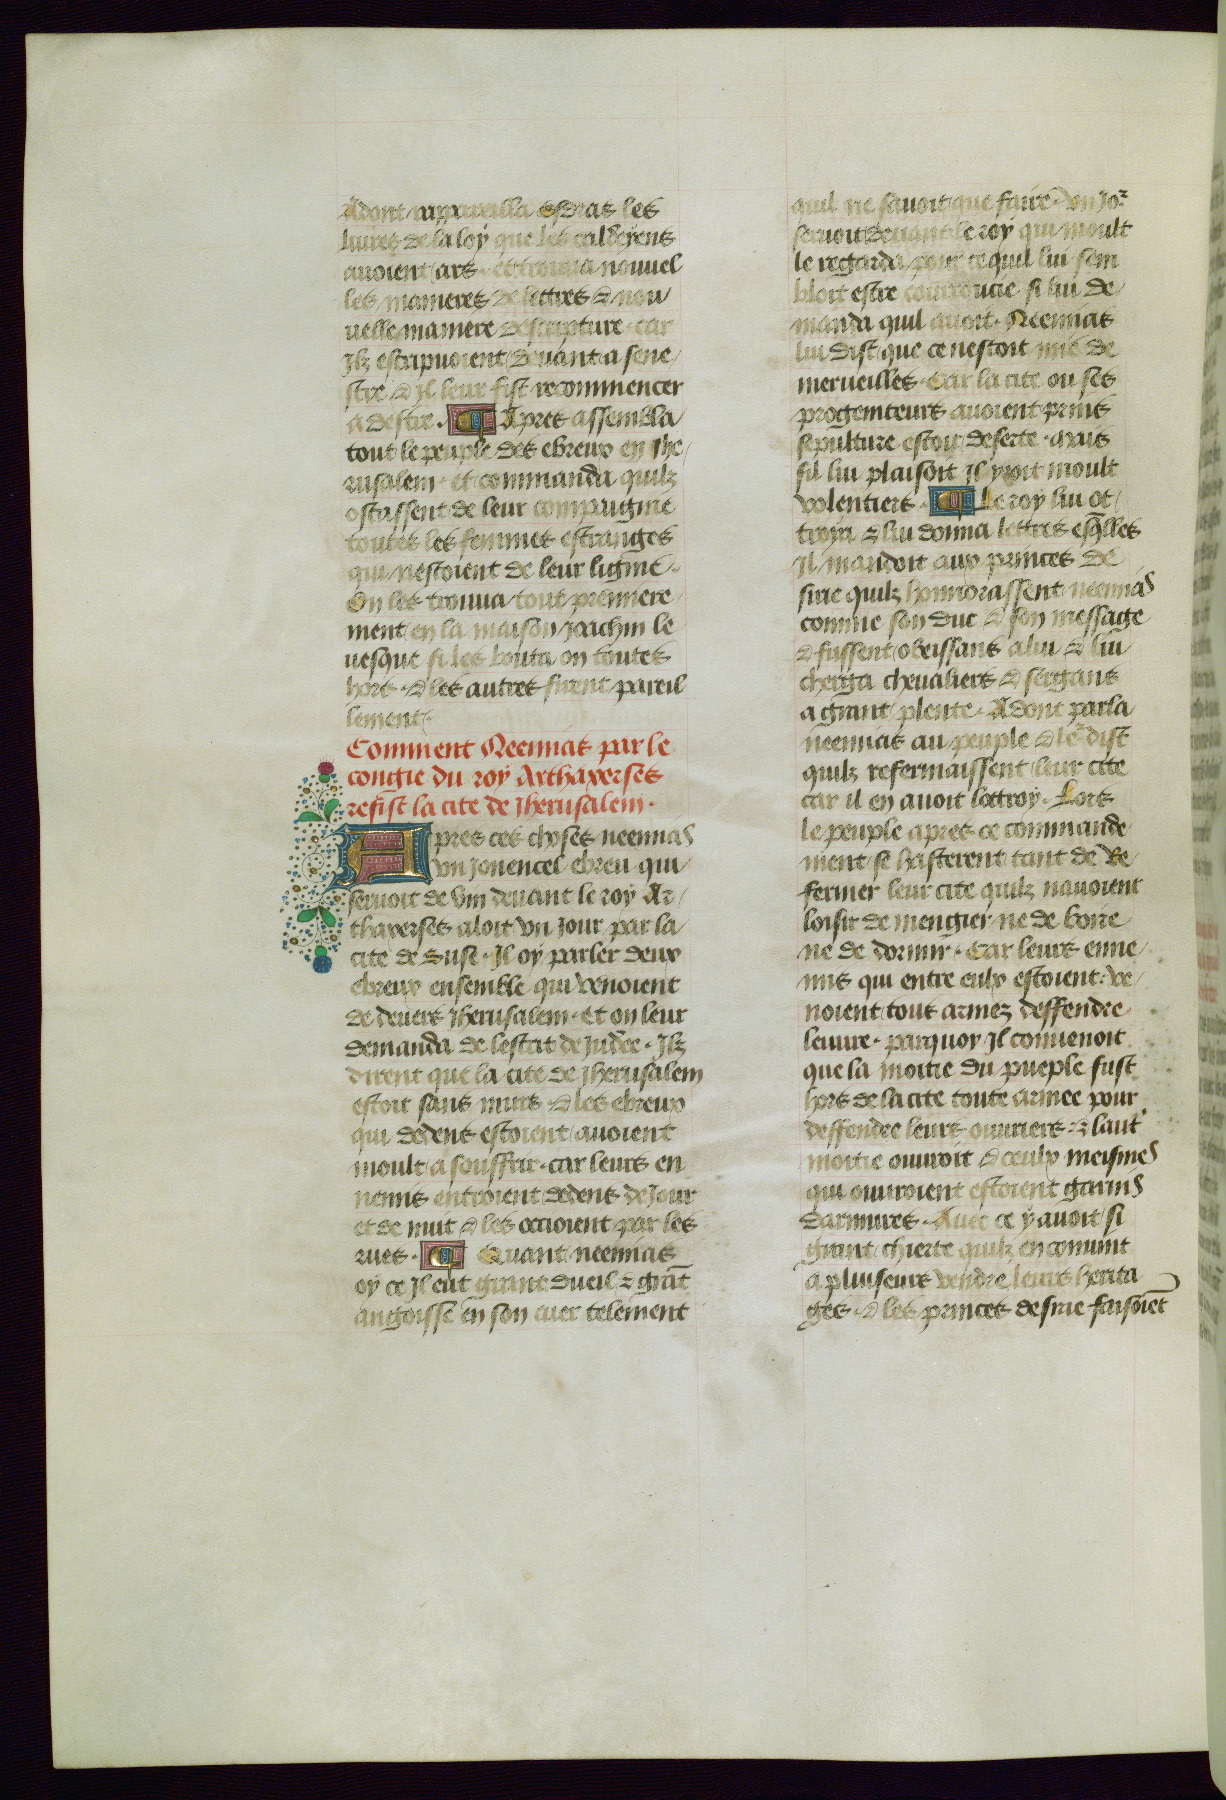 Adont rapareilla esdras les
liures de la loy que les caldeyens
auoient ars · et trouua nouuel
les manieres de lettres & nou
uelle maniere descripture · car
Ilz escripuoient deuant a sene
stre & il leur fist recommencer
a destre · Apres assembla
tout le peuple des ebreux en Jhe
rusalem · et commanda quilz
ostassent de leur compaignie
toutes les femmes estranges
qui nestoient de leur lignie ·
On les trouua tout premiere
ment en la maison Joachin le
uesque si les bouta on toutes
hors · & les autres firent pareil
lement ·
Comment Neemias par le
congie du roy Arthaxerses
refist la cite de Jherusalem ·
Apres ces choses neemias
vn Jouencel ebreu qui
seruoit de vin deuant le roy Ar
thaxerses aloit vn Jour par la
cite de Suse · Il oy parler deux
ebreux ensemble qui venoient
de deuers Jherusalem · Et on leur
demanda de lestat de Judee · Ilz
dirent que la cite de Jherusalem
estoit sans murs · & les ebreux
qui dedens estoient auoient
moult a souffrir · car leurs en
nemis entroient dedens de Jour
et de nuit & les occioient par les
rues · Quant neemias
oy ce Il eut grant dueil & grãt
angoisse en son cuer telement
quil ne sauoit que faire · vn Jor
seruoit deuant le roy qui moult
le regarda pour ce quil lui sem
bloit estre courroucie · si lui de
manda quil auoit · Neemias
lui dist que ce nestoit mie de
merueilles · Car la cite ou ses
progeniteurs auoient prins
sepulture estoit deserte · mais
sil lui plaisoit Il yroit moult
volentiers · Le roy lui ot
troya & lui donna lettres esqlles
Il mandoit aux princes de
sirie quilz honnorassent neemias
comme son duc & son message
& fussent obeissans a lui & lui
cherga cheualiers & sergans
a grant plente · Adont parla
neemias au peuple & le² dist
quilz refermaissent leur cite
car il en auoit lottroy · Lors
le peuple apres ce commande
ment se hasterent tant de Re
fermer leur cite quilz nauoient
loisir de mengier ne de boire
ne de dormir · Car leurs enne
mis qui entre eulx estoient · ve
noient tout armez deffendre
leuure · parquoy Il conuenoit
que la moitie du pueple fust
hors de la cite toute armee pour
deffendre leurs ouuriers · & laut'
moitie ouuroit & ceulx meismes
qui ouuroient estoient garnis
darmures · Auec ce y auoit si
grant chierte quilz en conuint
a pluiseurs vendre leurs herita
ges · & les princes de sirie faisoiẽt